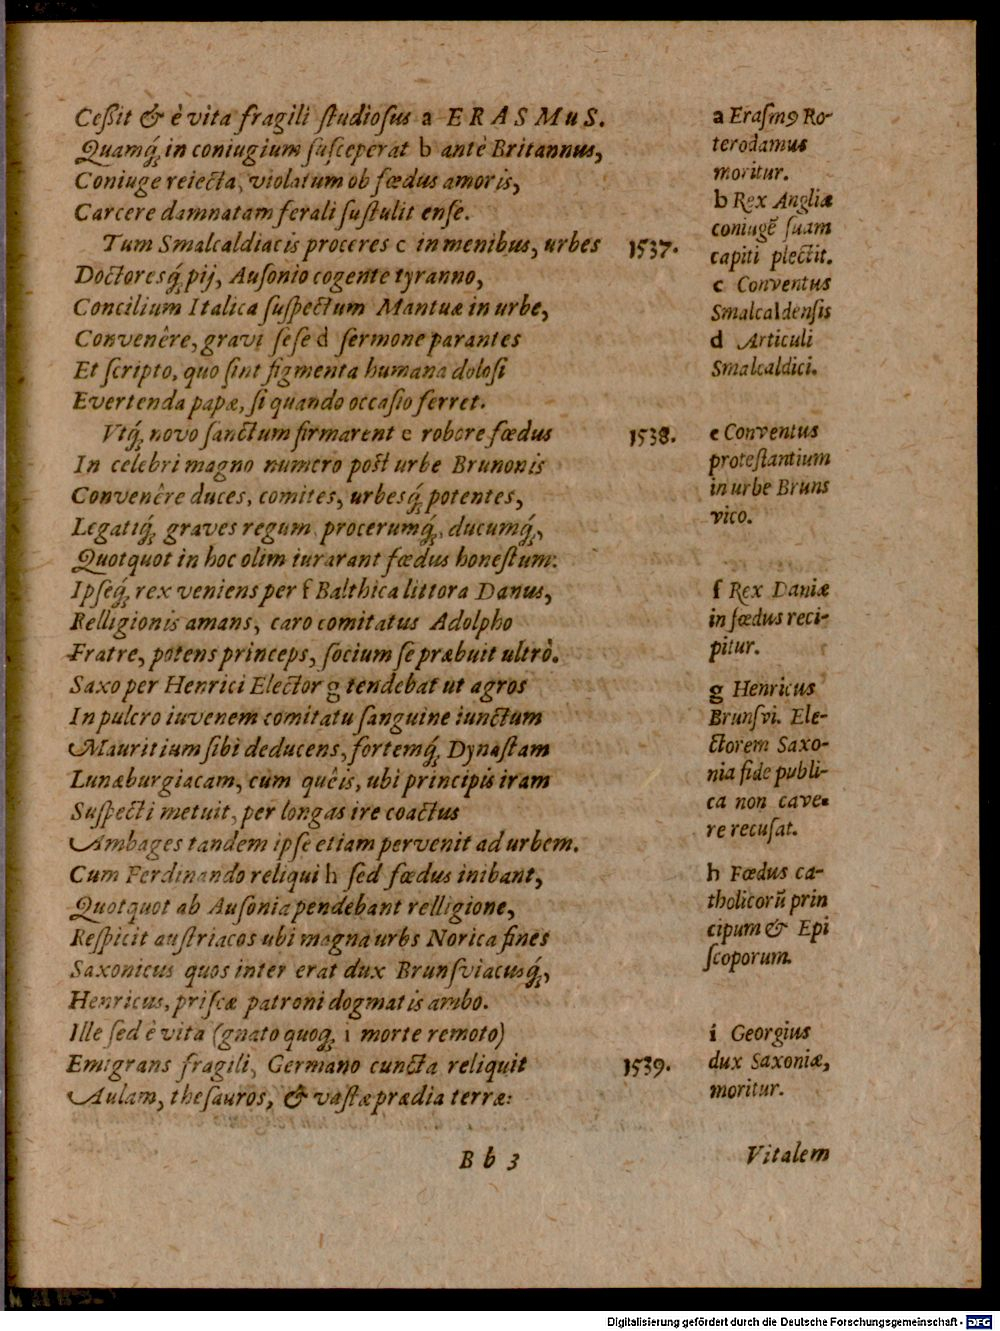 Ceßit & è vita fragili ſtudioſus a ERASMuS.
Quamq́; in coniugium ſuſceperat b antè Britannus,
Coniuge reiecta, violatum ob fœdus amoris,
Carcere damnatam ferali ſuſtulit enſe.
Tum Smalcaldiacis proceres c in menibus, urbes
Doctoresq́; pij, Auſonio cogente tyranno,
Concilium Italica ſuſpectum Mantuæ in urbe,
Convenêre, gravi ſeſe d ſermone parantes
Et ſcripto, quo ſint figmenta humana doloſi
Evertenda papæ, ſi quando occaſio ferret.
Vtq́; novo ſanctum firmarent e robore fœdus
In celebri magno numero poſt urbe Brunonis
Convenêre duces, comites, urbesq́; potentes,
Legatiq́; graves regum, procerumq́;, ducumq́;,
Quotquot in hoc olim iurarant fœdus honeſtum:
Ipſeq́; rex veniens per f Balthica littora Danus,
Relligionis amans, caro comitatus Adolpho
Fratre, potens princeps, ſocium ſe præbuit ultrò.
Saxo per Henrici Elector g tendebat ut agros
In pulcro iuvenem comitatu ſanguine iunctum
Mauritium ſibi deducens, fortemq́; Dynaſtam
Lunæburgiacam, cum quêis, ubi principis iram
Suſpecti metuit, per longas ire coactus
Ambages tandem ipſe etiam pervenit ad urbem.
Cum Ferdinando reliqui h ſed fœdus inibant,
Quotquot ab Auſonia pendebant relligione,
Reſpicit auſtriacos ubi magna urbs Norica fines
Saxonicus quos inter erat dux Brunſviacusq́;,
Henricus, priſcæ patroni dogmatis ambo.
Ille ſed è vita (gnato quoq́; i morte remoto)
Emigrans fragili, Germano cuncta reliquit
Aulam, theſauros, & vaſta prædia terræ:
1537.
1538.
1539.
a Eraſmꝰ Ro-
terodamus
moritur.
b Rex Angliæ
coniugẽ ſuam
capiti plectit.
c Conventus
Smalcaldenſis
d Articuli
Smalcaldici.
e Conventus
proteſtantium
in urbe Bruns
vico.
f Rex Daniæ
in fœdus reci-
pitur.
g Henricus
Brunſvi. Ele-
ctorem Saxo-
nia fide publi-
ca non cave-
re recuſat.
h Fœdus ca-
tholicorũ prin
cipum & Epi
ſcoporum.
i Georgius
dux Saxoniæ,
moritur.
B b 3
Vitalem
Digitalisierung gefördert durch die Deutsche Forschungsgemeinschaft - DFG